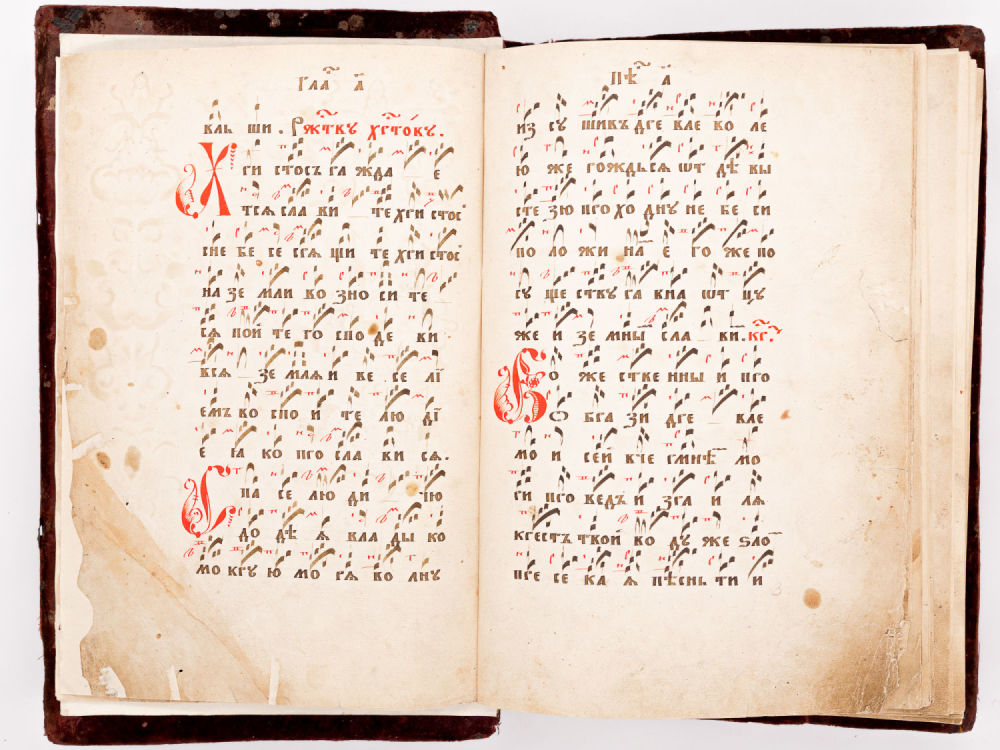 Гла҃ а҃
вль ши . Рж҃тву хрс҃то́ву .
Хри стосъ ра жда е
тся сла ви те хри стос
с не бе се ся щи те хри стос
на зе мли во зно си те
ся пой те го спо де ви
вся зе мля и ве се лї
емъ во спо и те лю дї
е ꙗ ко про сла ви ся .
Спа се лю ди чю
до дѣ я вла ды ко
мо кру ю мо ря во лну
Пѣ҃ а҃
из су шивъ дре вле во ле
ю же рождься ѿт дѣ вы
сте зю про хо дну не бе си
по ло жи на е го же по
су ще ству ра вна ѿт цу
же и зе мны сла ви . кр҃ .
Бо же стве нны и про
ѡ бра зи дре вле
мо и сей в че рмнѣ мо
ри про ведъ и зра и ля
крестъ твой во ду же зло
пре се ка я пѣснь ти и